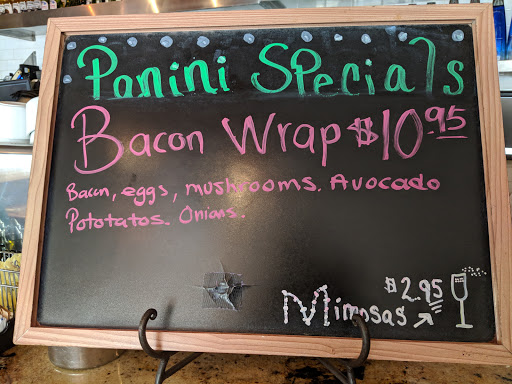 Panini Specials
Bacon Wrap $10.95
Bacon, eggs, mushrooms. Avocado
Pototatos. Onions.
$2.95
Mimosas